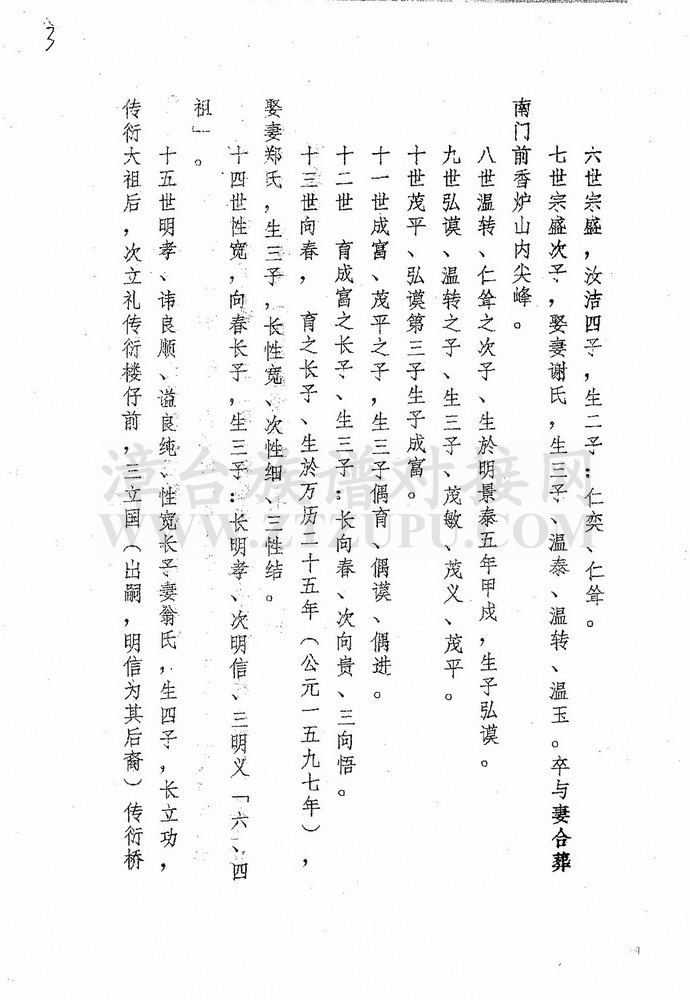 3
六世宗盛，汝洁四子，生二子：仁奕、仁耸。
七世宗盛次子，娶妻谢氏，生三子、温泰、温转、温玉。卒与妻合葬
南门前香炉山内尖峰。
八世温转、仁耸之次子、生於明景泰五年甲戌，生子弘谟。
九世弘谟、温转之子、生三子、茂敏、茂义、茂平。
十世茂平、弘谟第三子生子成富。
十一世成富、茂平之子，生三子偶育、偶谟、偶进。
十二世 育成富之长子、生三子：长向春、次向贵、三向悟。
十三世向春， 育之长子、生於万历二十五年（公元一五九七年），
娶妻郑氏，生三子，长性宽、次性细、三性结。
十四世性宽，向春长子，生三子：长明孝、次明信、三明义「六、四
祖」。
十五世明孝、讳良顺、谥良纯、性宽长子妻翁氏，生四子，长立功，
传衍大祖后，次立礼传衍楼仔前，三立国（出嗣，明信为其后裔）传衍桥
漳台族谱对接网
WWW.ZTZUPU.COM